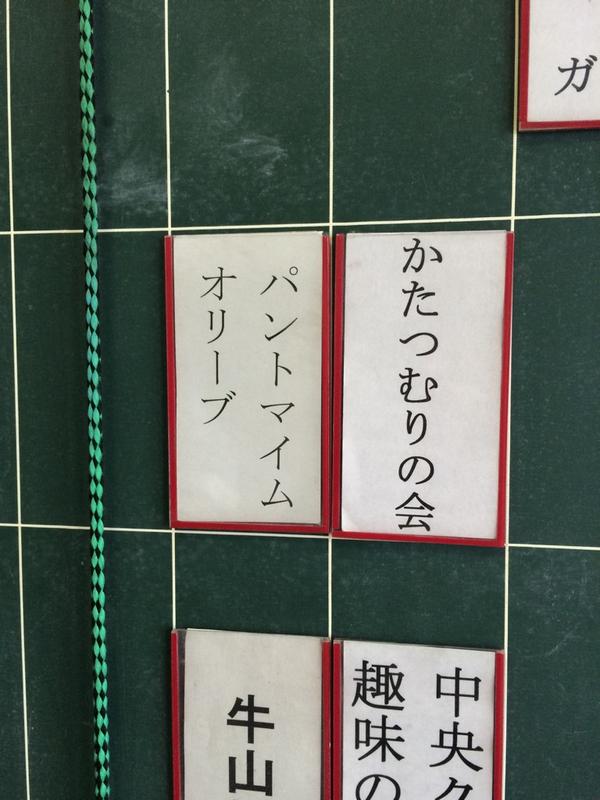 ガ
かたつむりの会
パントマイム
オリーブ
中央ク
趣味の
牛山